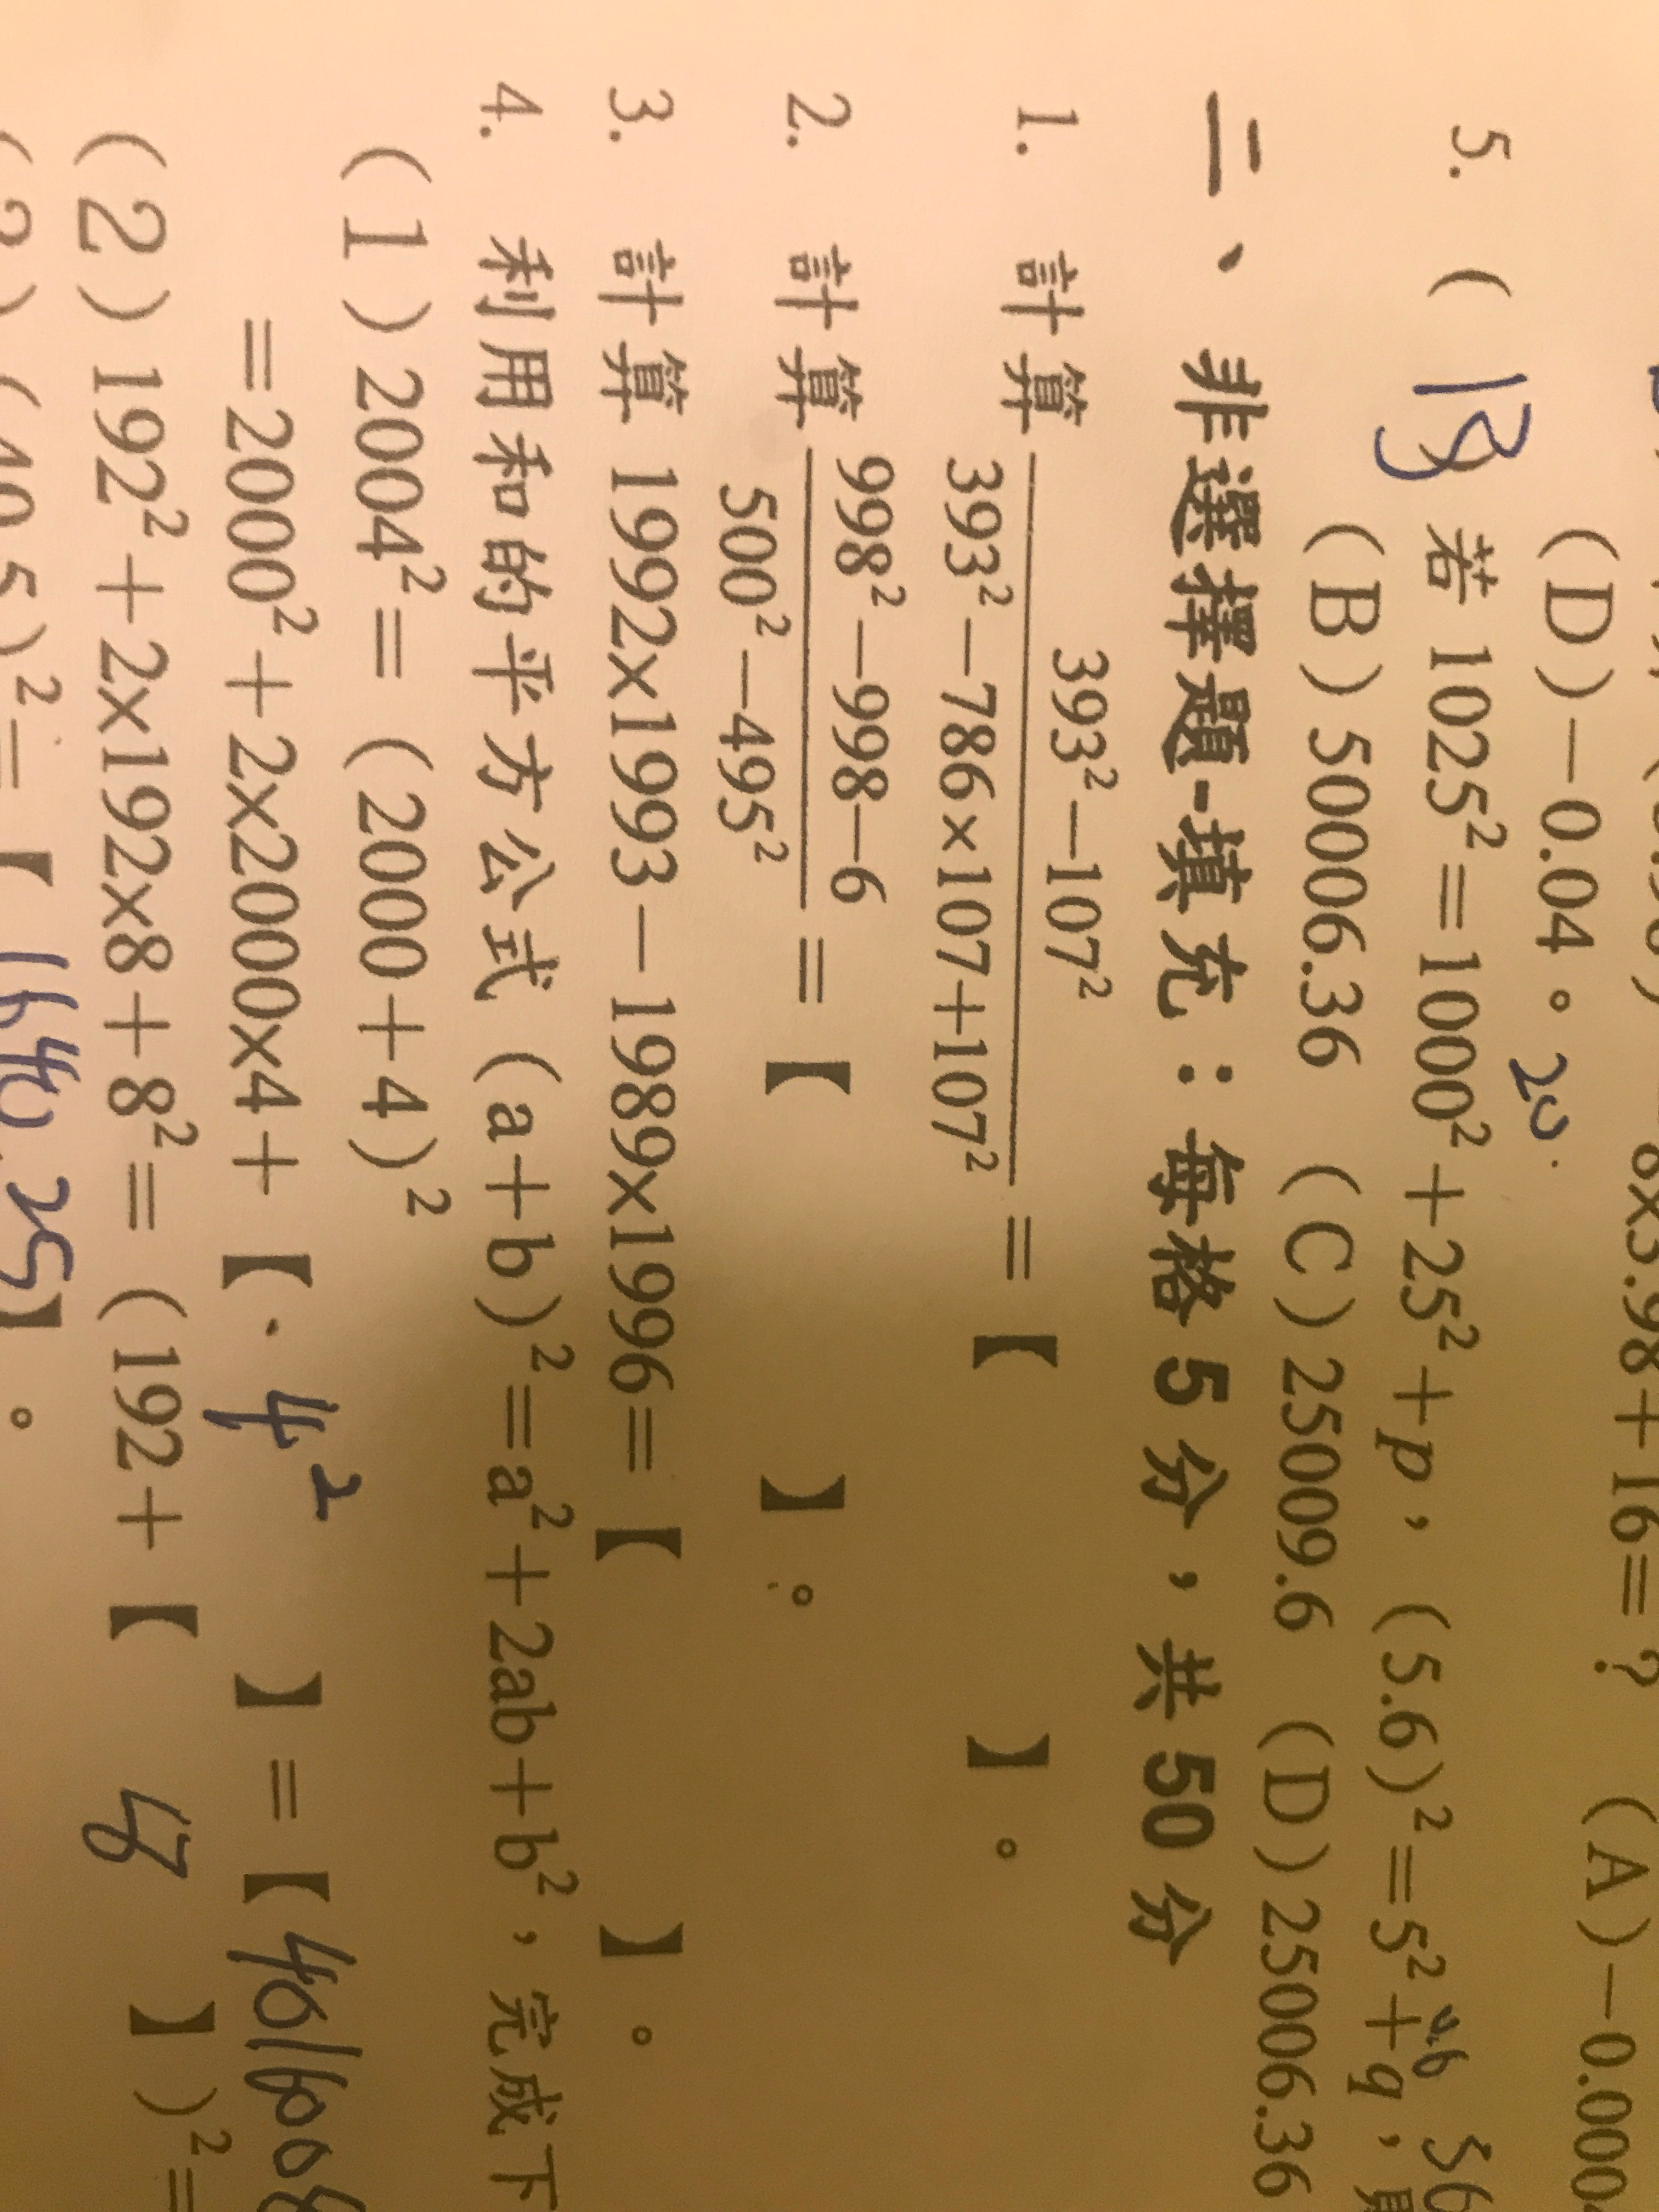 8x3.98+16=? (A)-0.000
(D)-0.04。 20
5. ( B ) 若 1025²=1000²+25²+p,(5.6)²=5²+q,
0.6 36
(B)50006.36 (C)25009.6 (D)25006.36
二、非選擇題-填充:每格 5 分,共 50 分
1. 計算 393²-107² / 393²-786×107+107² =【 】。
2. 計算 998²-998-6 / 500²-495² =【 】。
3. 計算 1992x1993-1989x1996=【 】。
4. 利用和的平方公式(a+b)²=a²+2ab+b²,完成下
(1)2004²=(2000+4)²
=2000²+2x2000x4+【 4² 】=【 401608
(2)192²+2x192x8+8²=(192+【 8 】)²=
(40.5)²=【 1640.25】。